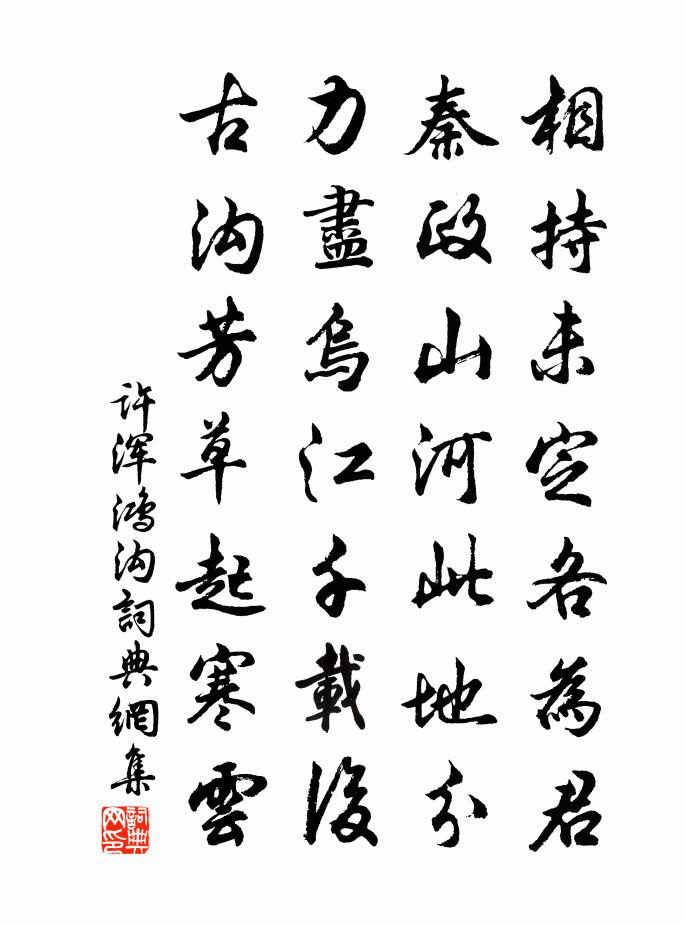 相持未定各為君
秦政山河此地分
力盡烏江千載後
古沟芳草起寒雲
许浑鴻沟詞典網集
詞典
网印